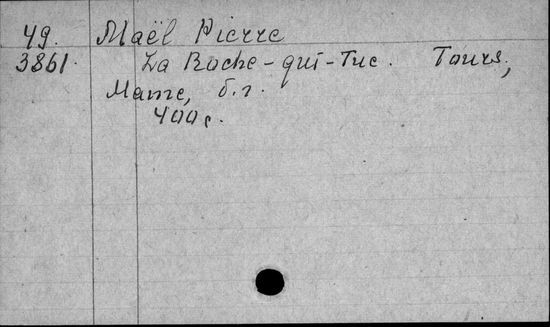 49. Maël Pierre
3861. La Roche-qui-Tue. Tours,
Mame, б.г.
400 с.